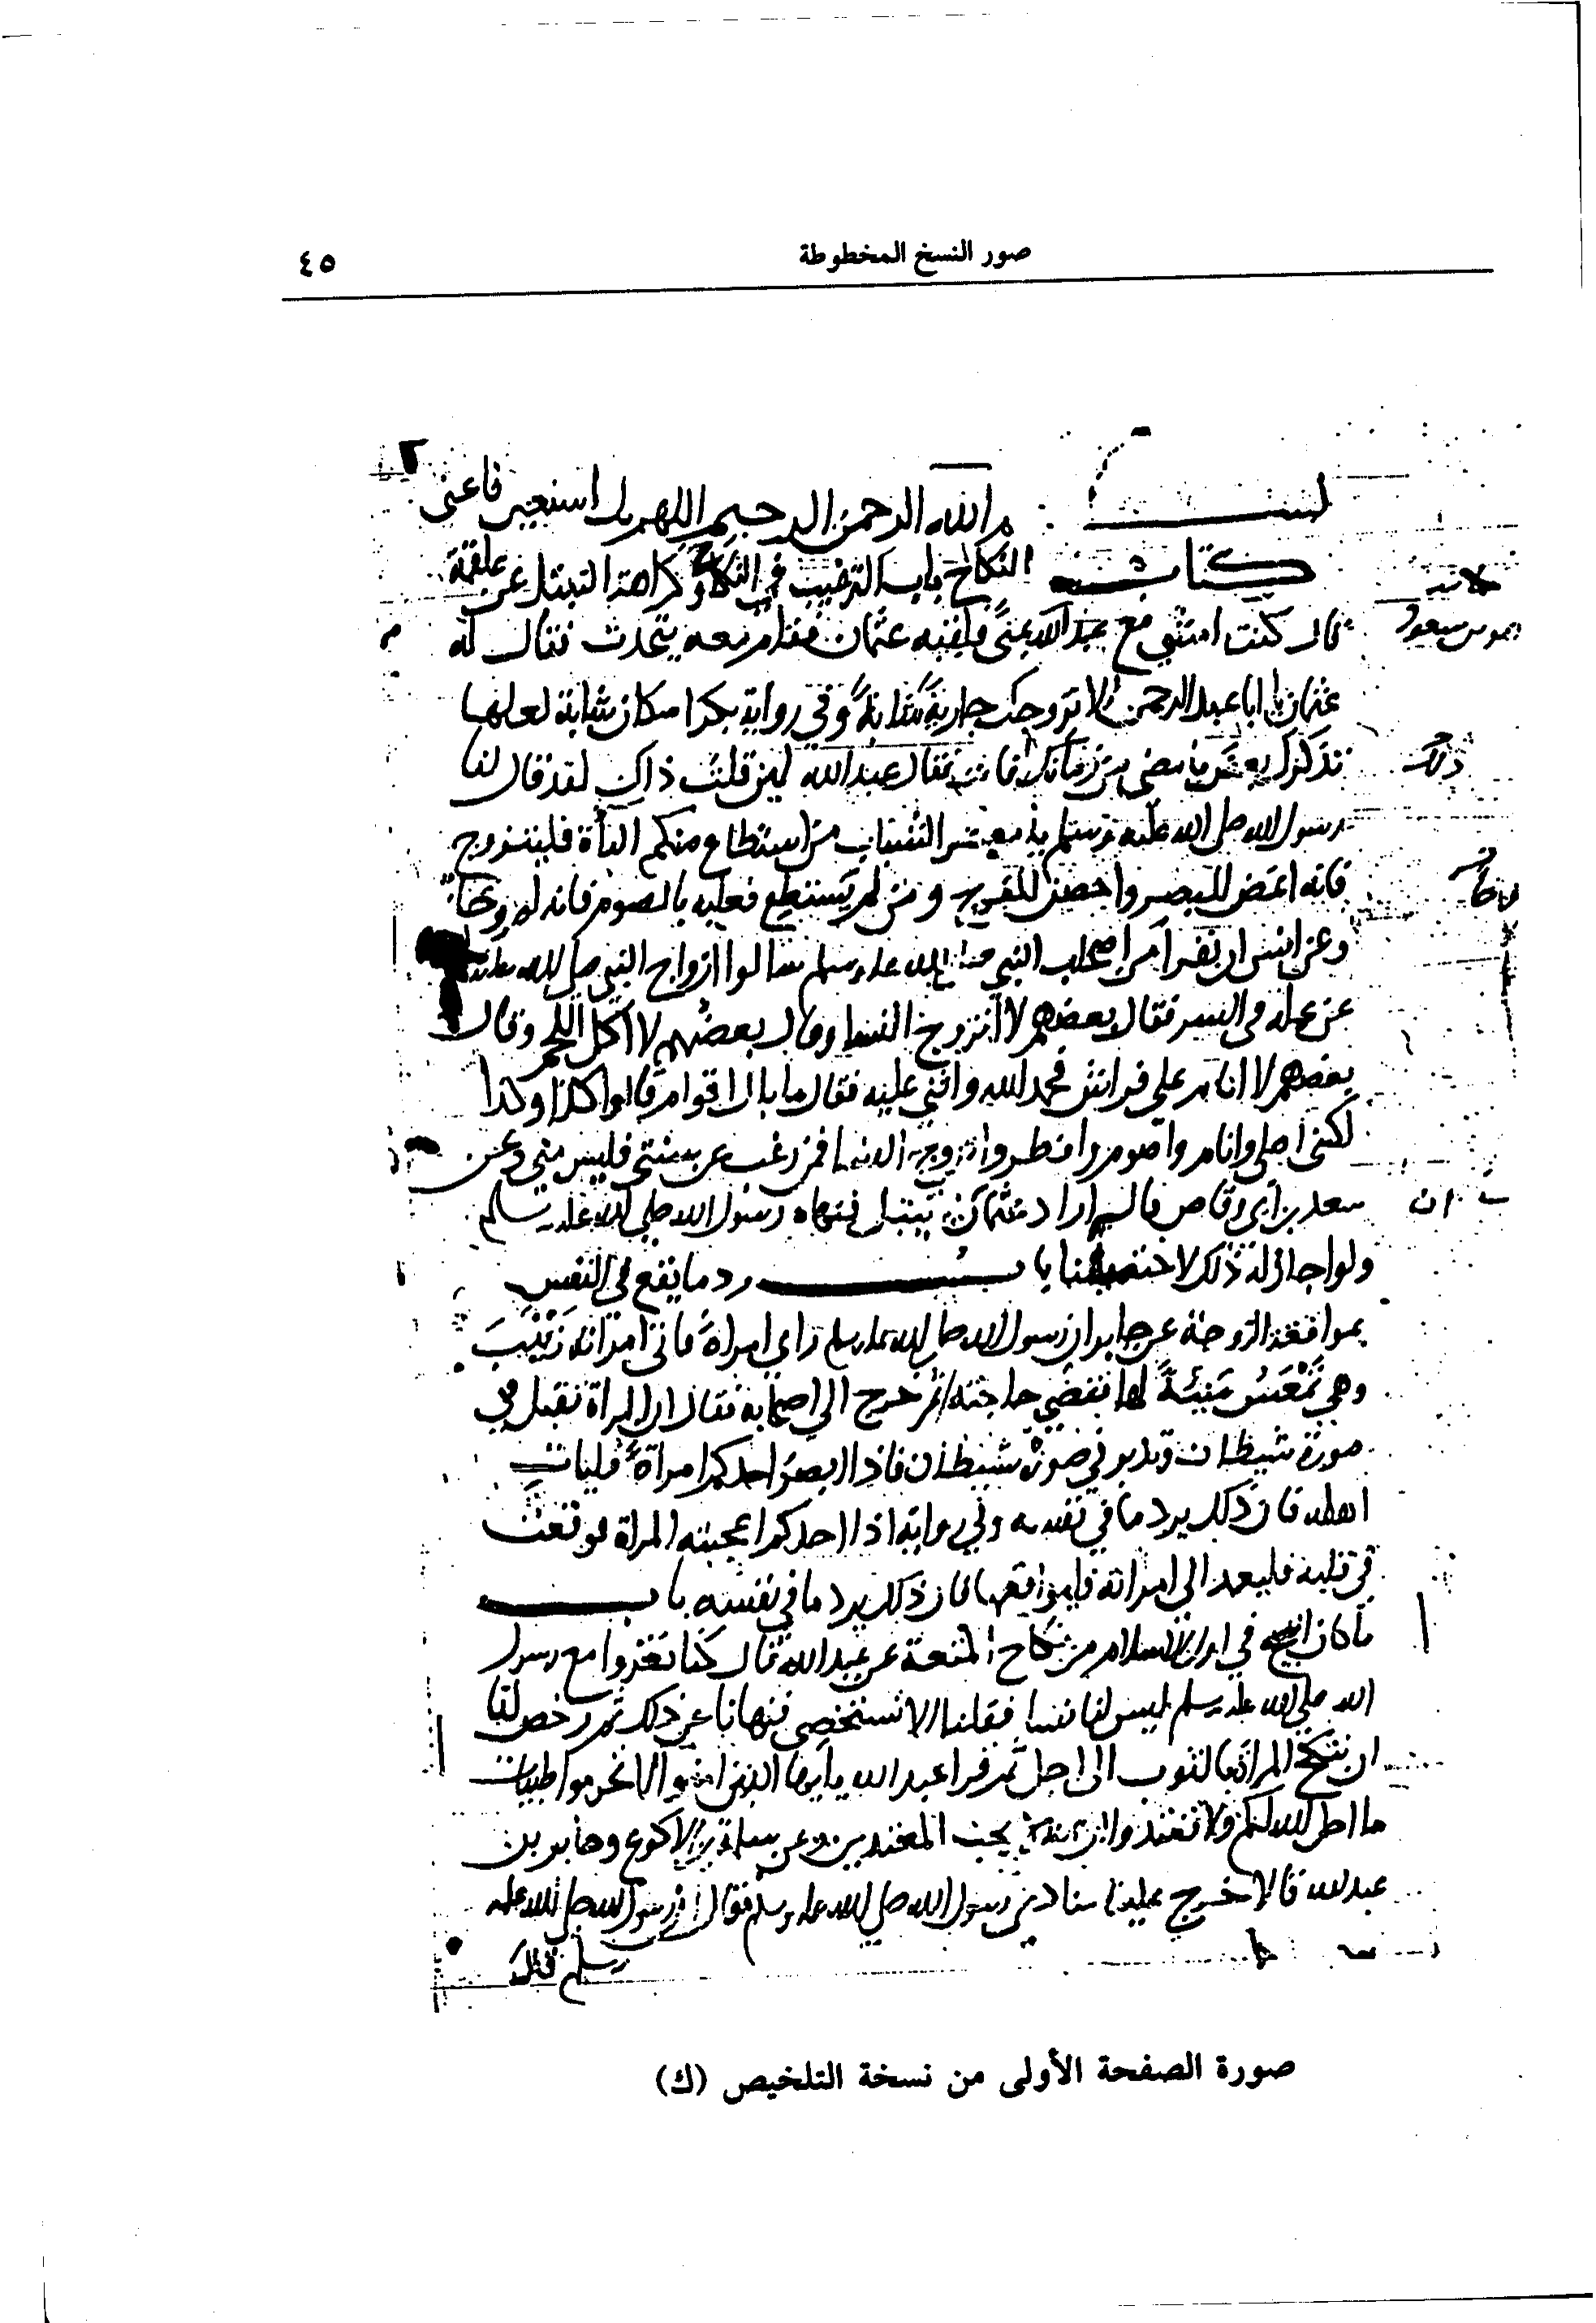 صور النسخ المخطوطة
٤٥
بسم الله الرحمن الرحيم اللهم بك استعين فاعني
كتاب النكاح باب الترغيب في النكاح وكراهة التبتل عن علقمة
قال كنت امشي مع عبد الله بمنى فلقيه عثمان فقام معه يتحدث فقال له
عثمان يا ابا عبد الرحمن الا نزوجك جارية شابة وفي رواية بكرا مكان شابة لعلها
تذكرك بعض ما مضى من زمانك فقال عبد الله لين قلت ذاك لقد قال لنا
رسول الله صلى الله عليه وسلم يا معشر الشباب من استطاع منكم الباءة فليتزوج
فانه اغض للبصر واحصن للفرج ومن لم يستطع فعليه بالصوم فانه له وجاء
وعن انس ان نفرا من اصحاب النبي صلى الله عليه وسلم سالوا ازواج النبي صلى الله عليه
عن عمله في السر فقال بعضهم لا اتزوج النسا وقال بعضهم لا اكل اللحم وقال
بعضهم لا انام على فراش فحمد الله واثنى عليه فقال ما بال اقوام قالوا كذا وكذا
لكني اصلي وانام واصوم وافطر واتزوج النسا فمن رغب عن سنتي فليس مني وعن
سعد بن ابي وقاص قال اراد عثمان يتبتل فنهاه رسول الله صلى الله عليه وسلم
ولو اجاز له ذلك لاختصينا باب رد ما يقع في النفس
بمواقعة الزوجة عن جابر ان رسول الله صلى الله عليه وسلم راى امراة فاتى امراته زينب
وهي تمعس منيئة لها فقضى حاجته ثم خرج الى اصحابه فقال ان المراة تقبل في
صورة شيطان وتدبر في صورة شيطان فاذا ابصر احدكم امراة فليات
اهله فان ذلك يرد ما في نفسه وفي رواية اذا احدكم اعجبته المراة فوقعت
في قلبه فليعمد الى امراته فليواقعها فان ذلك يرد ما في نفسه باب
ما كان ابيح في اول الاسلام من نكاح المتعة عن عبد الله قال كنا نغزوا مع رسول
الله صلى الله عليه وسلم ليس لنا نسا فقلنا الا نستخصي فنهانا عن ذلك ثم رخص لنا
ان ننكح المراة بالثوب الى اجل ثم قرا عبد الله يا ايها الذين امنوا لا تحرموا طيبات
ما احل الله لكم ولا تعتدوا ان الله لا يحب المعتدين وعن سلمة بن الاكوع وجابر بن
عبد الله قالا خرج علينا منادي رسول الله صلى الله عليه وسلم فقال ان رسول الله صلى الله عليه
وسلم
صورة الصفحة الأولى من نسخة التلخيص (ك)